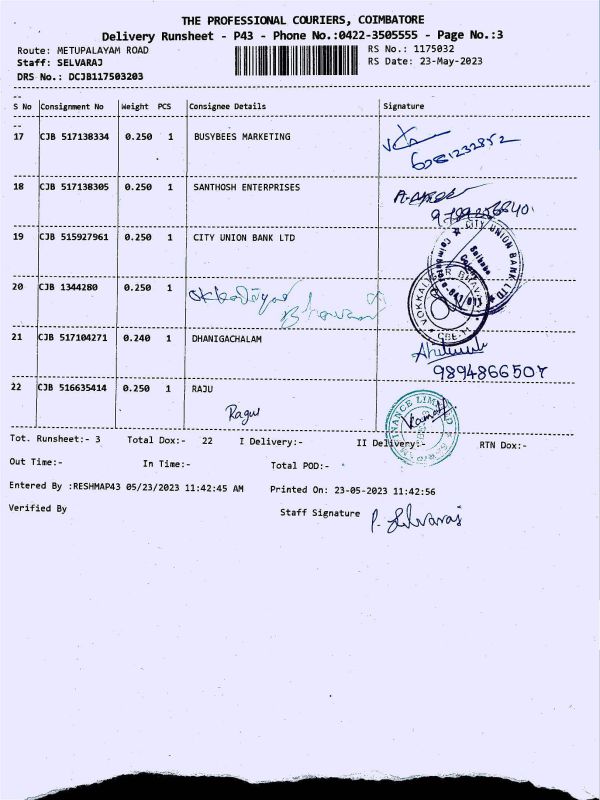 THE PROFESSIONAL COURIERS, COIMBATORE
Delivery Runsheet - P43 - Phone No.:0422-3505555 - Page No.:3
Route: METUPALAYAM ROAD RS No.: 1175032
Staff: SELVARAJ RS Date: 23-May-2023
DRS No.: DCJB117503203
S No Consignment No Weight PCS Consignee Details Signature
17 CJB 517138334 0.250 1 BUSYBEES MARKETING
18 CJB 517138305 0.250 1 SANTHOSH ENTERPRISES
19 CJB 515927961 0.250 1 CITY UNION BANK LTD
CITY UNION BANK LTD
20 CJB 1344280 0.250 1
21 CJB 517104271 0.240 1 DHANIGACHALAM
9894866507
22 CJB 516635414 0.250 1 RAJU
Ragu
Tot. Runsheet:- 3 Total Dox:- 22 I Delivery:- II Delivery:- RTN Dox:-
Out Time:- In Time:- Total POD:-
Entered By :RESHMAP43 05/23/2023 11:42:45 AM Printed On: 23-05-2023 11:42:56
Verified By Staff Signature P. Selvaraj